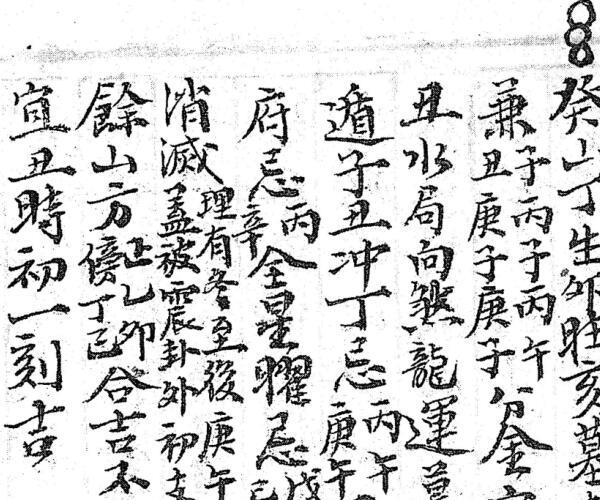 癸山丁生卯旺亥墓
兼子丙子丙午丑庚子庚子分金
丑水局向煞龍運
遁子丑冲丁忌丙午庚午
府忌丙辛金星曜忌
消滅理有冬至後庚午蓋被震卦外初
餘山方上乙卯傍丁巳合吉不
宜丑時初一刻吉